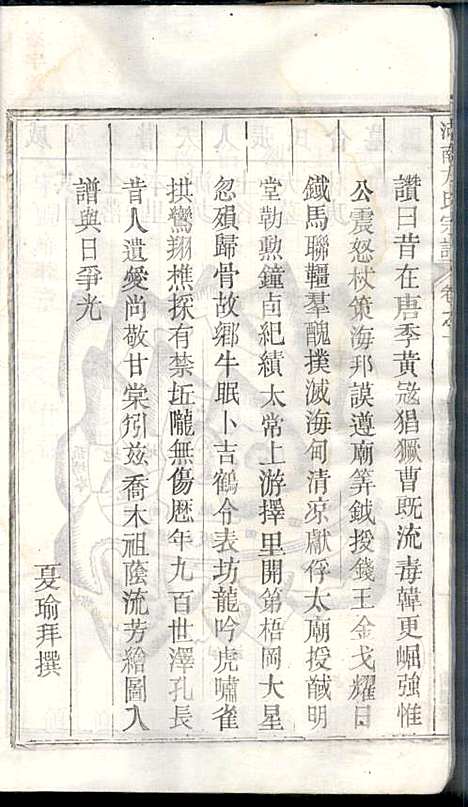 讚曰昔在唐季黃寇猖獗曹既流毒韓更崛強惟
公震怒杖策海邦謨遵廟筭鉞授錢王金戈耀日
鐵馬聯韁羣醜撲滅海甸清涼獻俘太廟授馘明
堂勒勲鐘卣紀績太常上游擇里開第梧岡大星
忽殞歸骨故鄉牛眠卜吉鶴令表坊龍吟虎嘯雀
拱鸞翔樵採有禁坵隴無傷歷年九百世澤孔長
昔人遺愛尚敬甘棠矧茲喬木祖蔭流芳繪圖入
譜與日爭光
夏瑜拜撰
氏宗譜 卷之